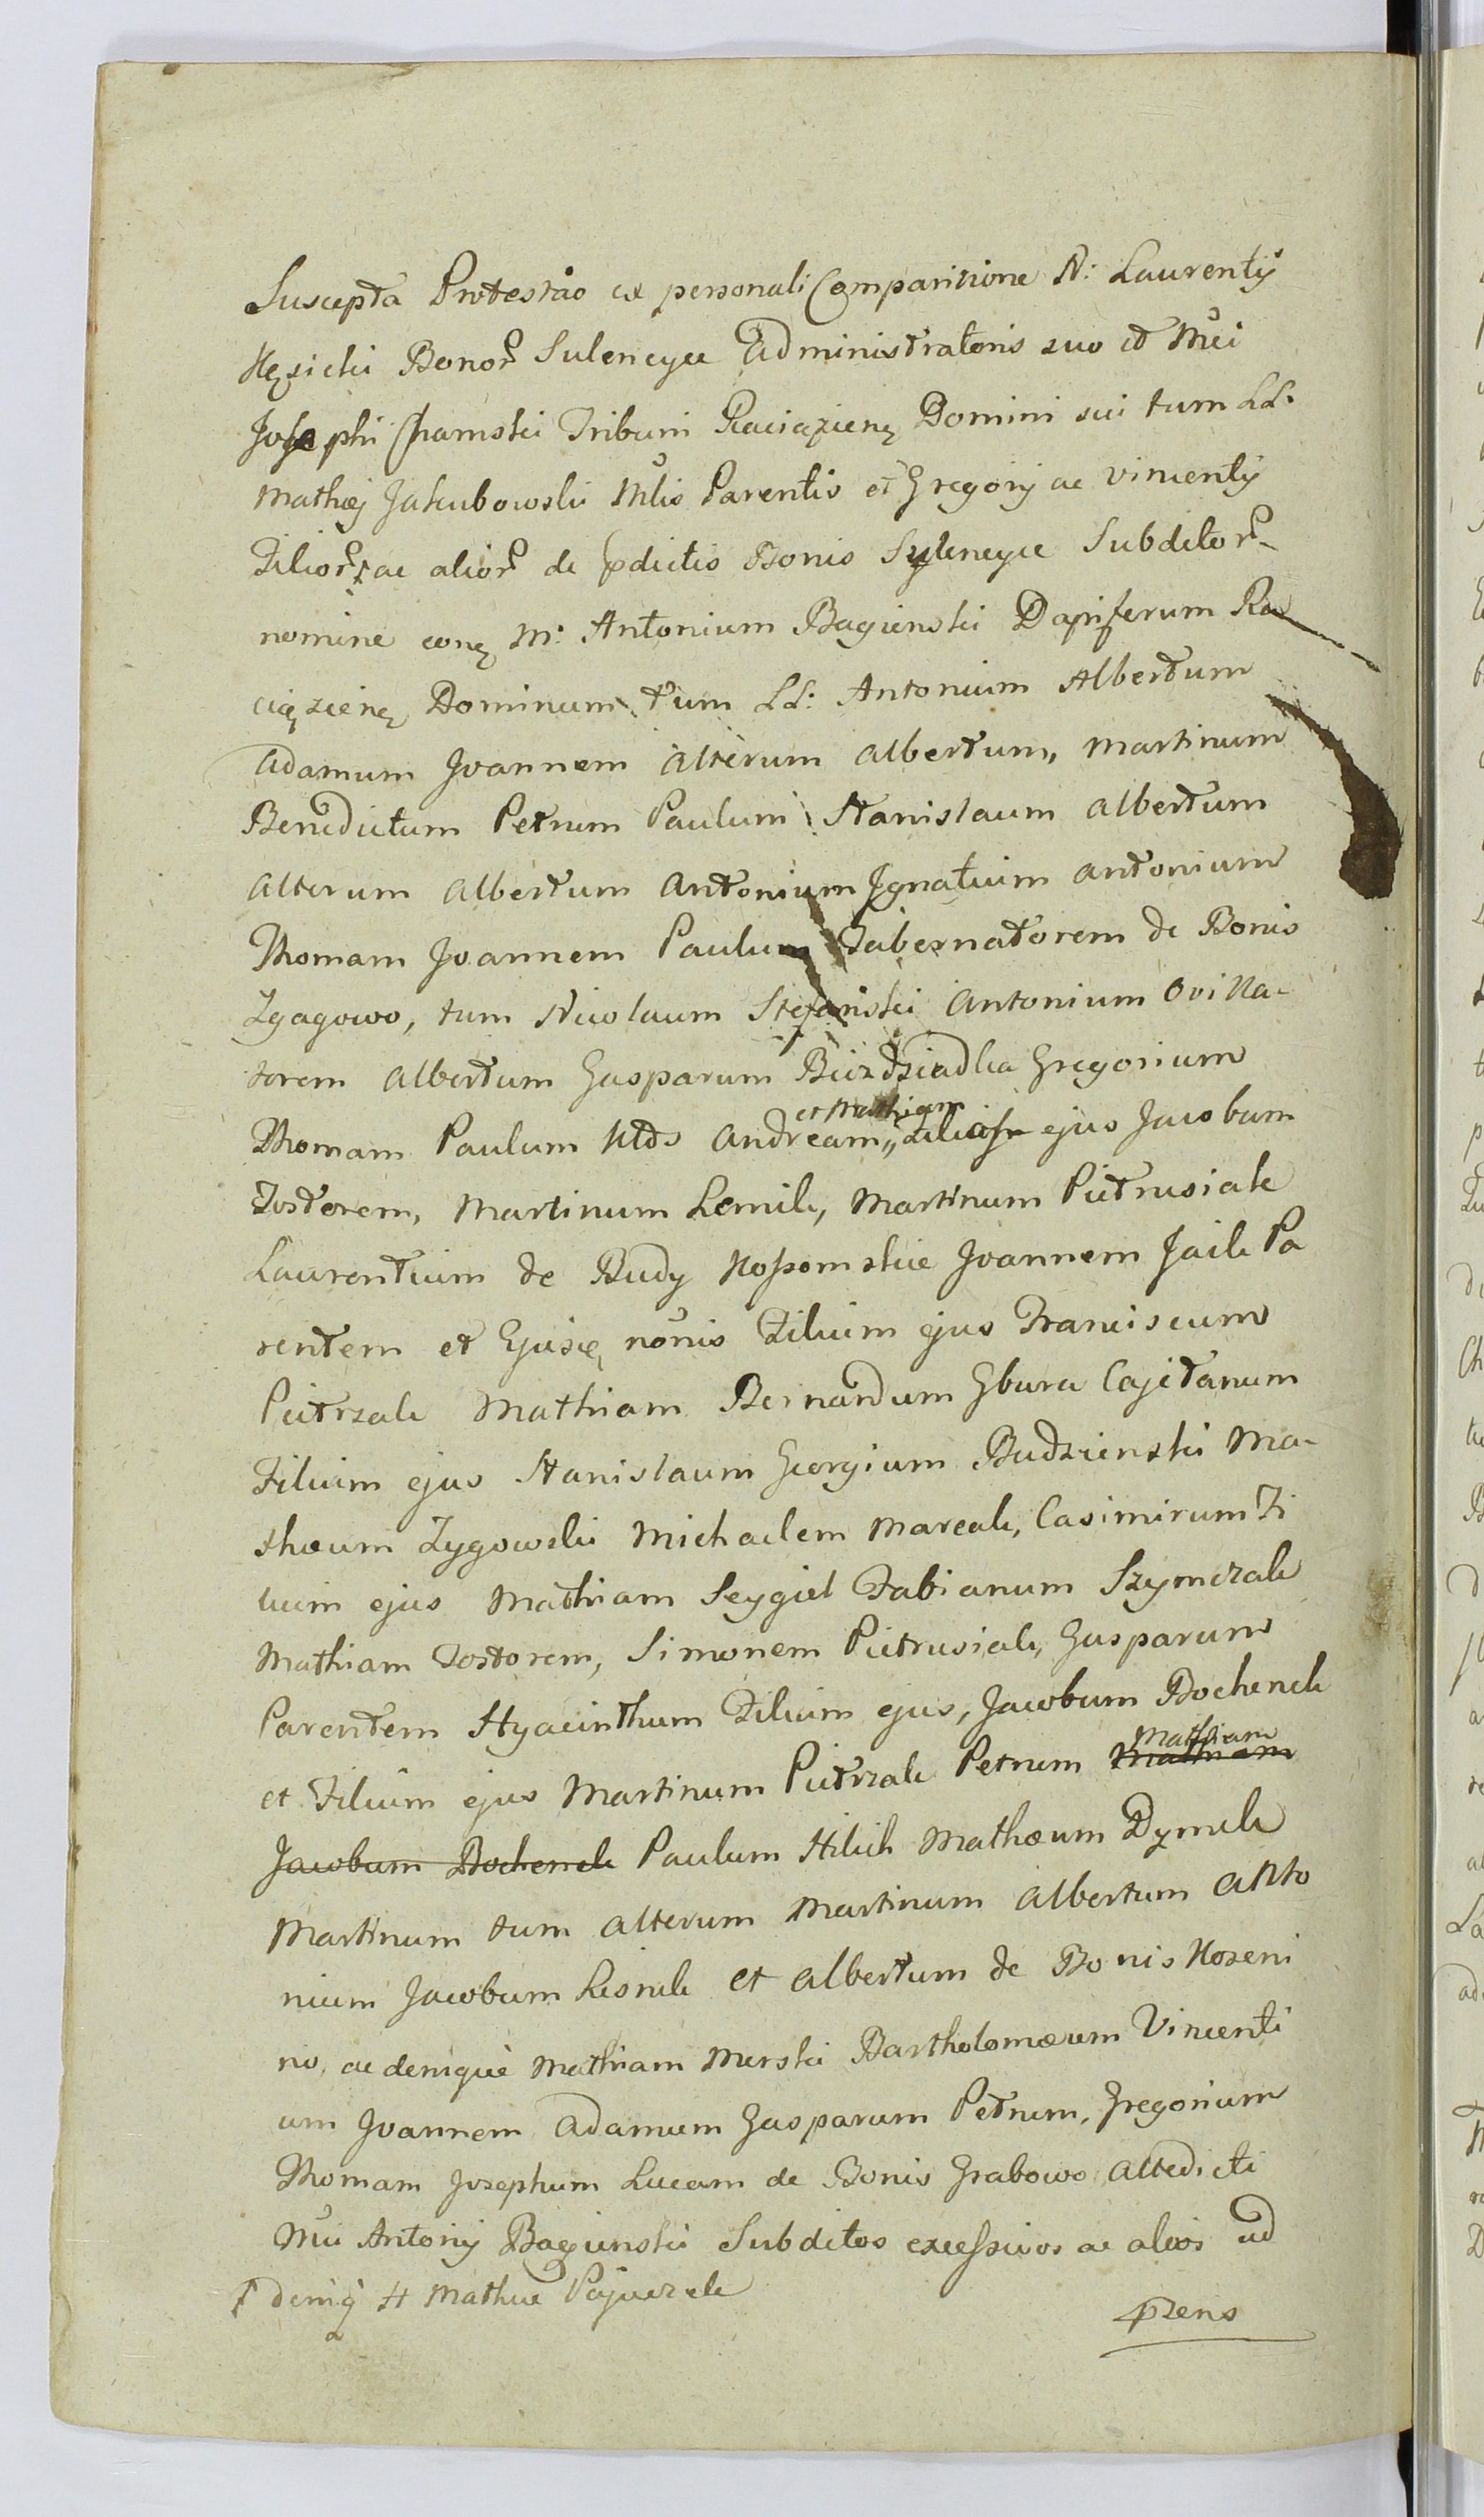 Suscepta Protestao ex personali Comparitione N: Laurentij
Kęsicki Bonor Sulencyce Administratoris suo et Mci
Josephi Chamski Tribuni Raciązien Domini sui tum LL:
Mathęj Jakubowski Mlis Parentis et Gregorij ac Vincentij
Filior ac alior de pdictis Bonis Sulencyce Subditor
nomine con M: Antonium Bagienski Dapiferum Ra
ciązien Dominum tum LL: Antonium Albertum
Adamum Joannem alterum Albertum, Martinum
Benedictum Petrum Paulum Stanislaum Albertum
alterum Albertum Antonium Ignatium Antonium
Thomam Joannem Paulum Tabernatorem de Bonis
Zgagowo, tum Nicolaum Stefanski Antonium Ovilia-
torem Albertum Gasparum Biezdziadka Gregorium
et Mathiam
Thomam Paulum Andream,, ejus Jacobum
Tostorem, Martinum Lemik, Martinum Pietrusiak
Laurentium de Budy Kossomskie Joannem Jaik Pa
rentem et Ejusd nonis Filium ejus Franciscum
Pietrzak Mathiam Bernardum Gbura Cajetanum
Filium ejus Stanislaum Georgium Budzienski Ma-
thæum Zygowski Michaelem Marcak, Casimirum Fi
lium ejus Mathiam Seygiel Fabianum Szymczak
Mathiam Tostorem, Simonem Pietrusiak, Gasparum
Parentem Hyacinthum Filium ejus, Jacobum Bochenek
Mathiam
et Filium ejus Martinum Pietrzak Petrum Mathiam
Jacobum Bochenek Paulum Stilich Mathæum Dymek
Martinum tum alterum Martinum Albertum Anto
nium Jacobum Lisnik et Albertum de Bonis Kozeni
no, ac denique Mathiam Merski Bartholomæum Vincenti
um Joannem Adamum Gasparum Petrum, Gregorium
Thomam Josephum Lucam de Bonis Grabowo altedicti
Mci Antonij Bagienski Subditos excessivos ac alios ad
deniq H Mathiæ Pajuczek
przens